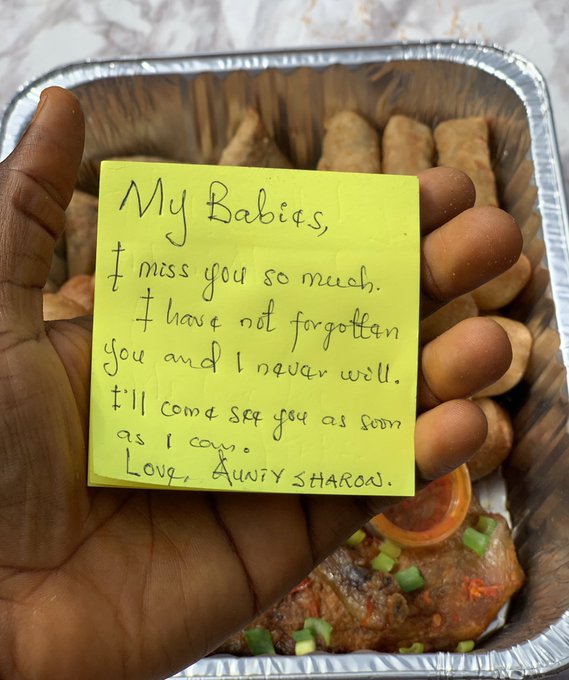 My Babies,
I miss you so much.
I have not forgotten
you and I never will.
I'll come see you as soon
as I can.
Love, AUNTY SHARON.